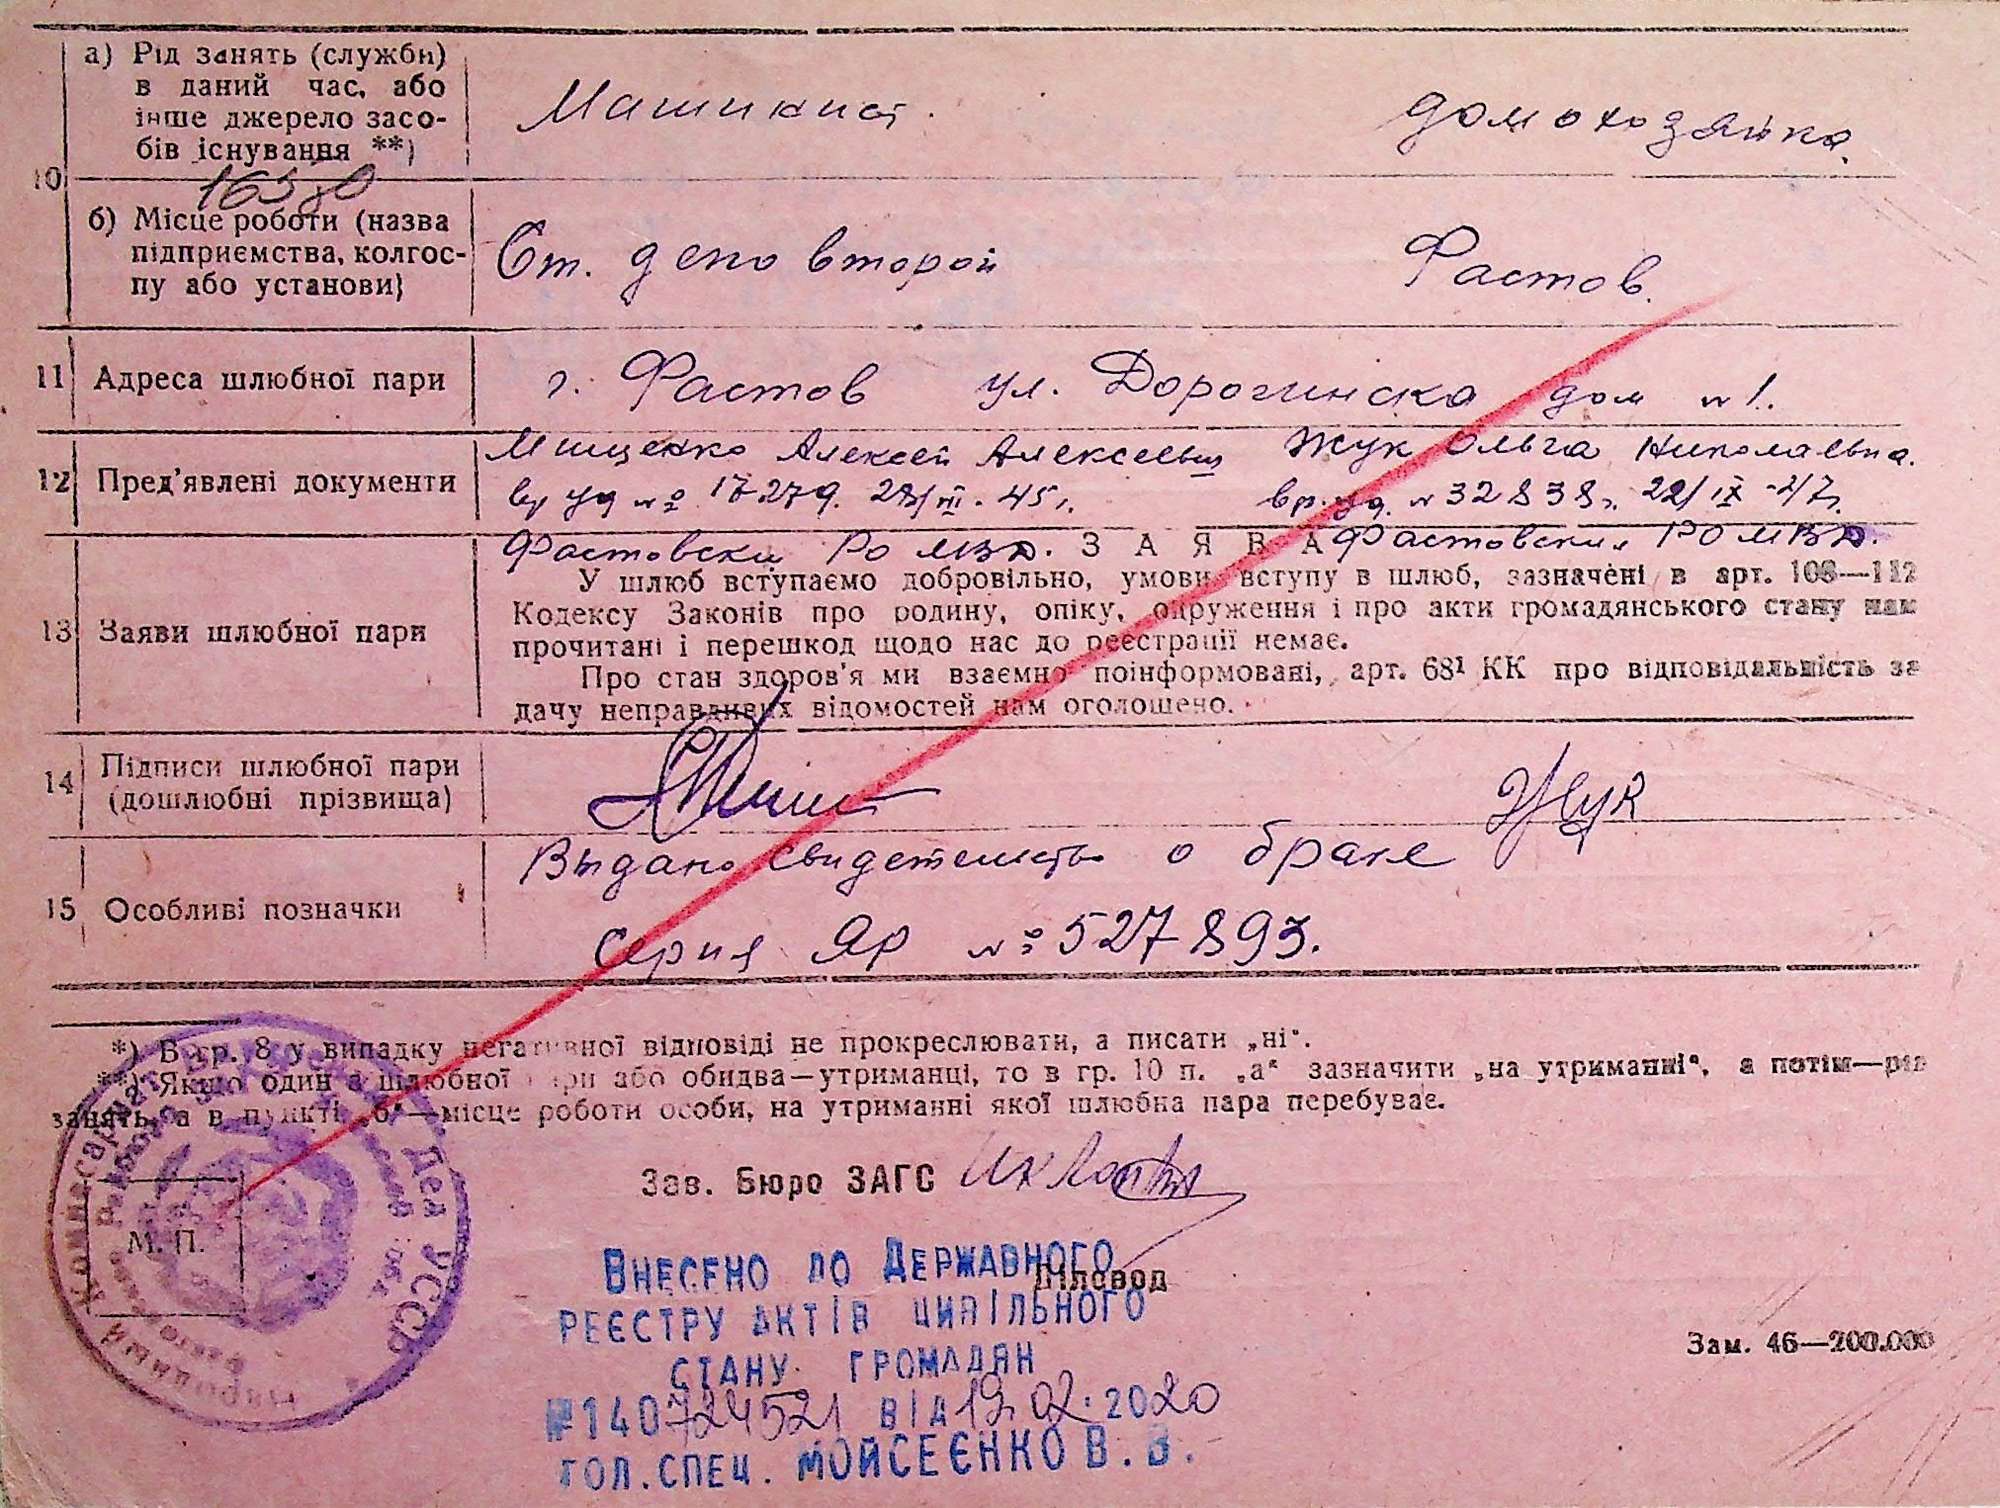 10 а) Рід занять (служби)
в даний час, або
інше джерело засо-
бів існування **)
Машинист. домохозяйка.
б) Місце роботи (назва
підприємства, колгос-
пу або установи)
Ст. депо второй Фастов.
11 Адреса шлюбної пари г. Фастов ул. Дорогинска дом № 1.
12 Пред'явлені документи
Мищенко Алексей Алексеевич Жук Ольга Николаевна.
вр уд № 17279. 28/III-45г. вр. уд. № 32838г. 22/IX-47г.
Фастовски РО МВД. ЗАЯВА Фастовским РО МВД.
13 Заяви шлюбної пари
У шлюб вступаємо добровільно, умови вступу в шлюб, зазначені в арт. 108—112
Кодексу Законів про родину, опіку, опруження і про акти громадянського стану нам
прочитані і перешкод щодо нас до реєстрації немає.
Про стан здоров'я ми взаємно поінформовані, арт. 68¹ КК про відповідальність за
дачу неправдивих відомостей нам оголошено.
14 Підписи шлюбної пари
(дошлюбні прізвища)
Жук
15 Особливі позначки
Выдано свидетельство о браке
Серия ЯР № 527893.
*) В гр. 8 у випадку негативної відповіді не прокреслювати, а писати „ні".
**) Якщо один з шлюбної пари або обидва—утриманці, то в гр. 10 п. „а" зазначити „на утриманні", а потім—рід
занять, а в пункті „б"—місце роботи особи, на утриманні якої шлюбна пара перебуває.
Зав. Бюро ЗАГС
М. П.
Діловод
Внесено до Державного
реєстру актів цивільного
стану громадян
№140724521 від 19.02.2020
гол. спец. Мойсеєнко В. В.
Зам. 46—200.000